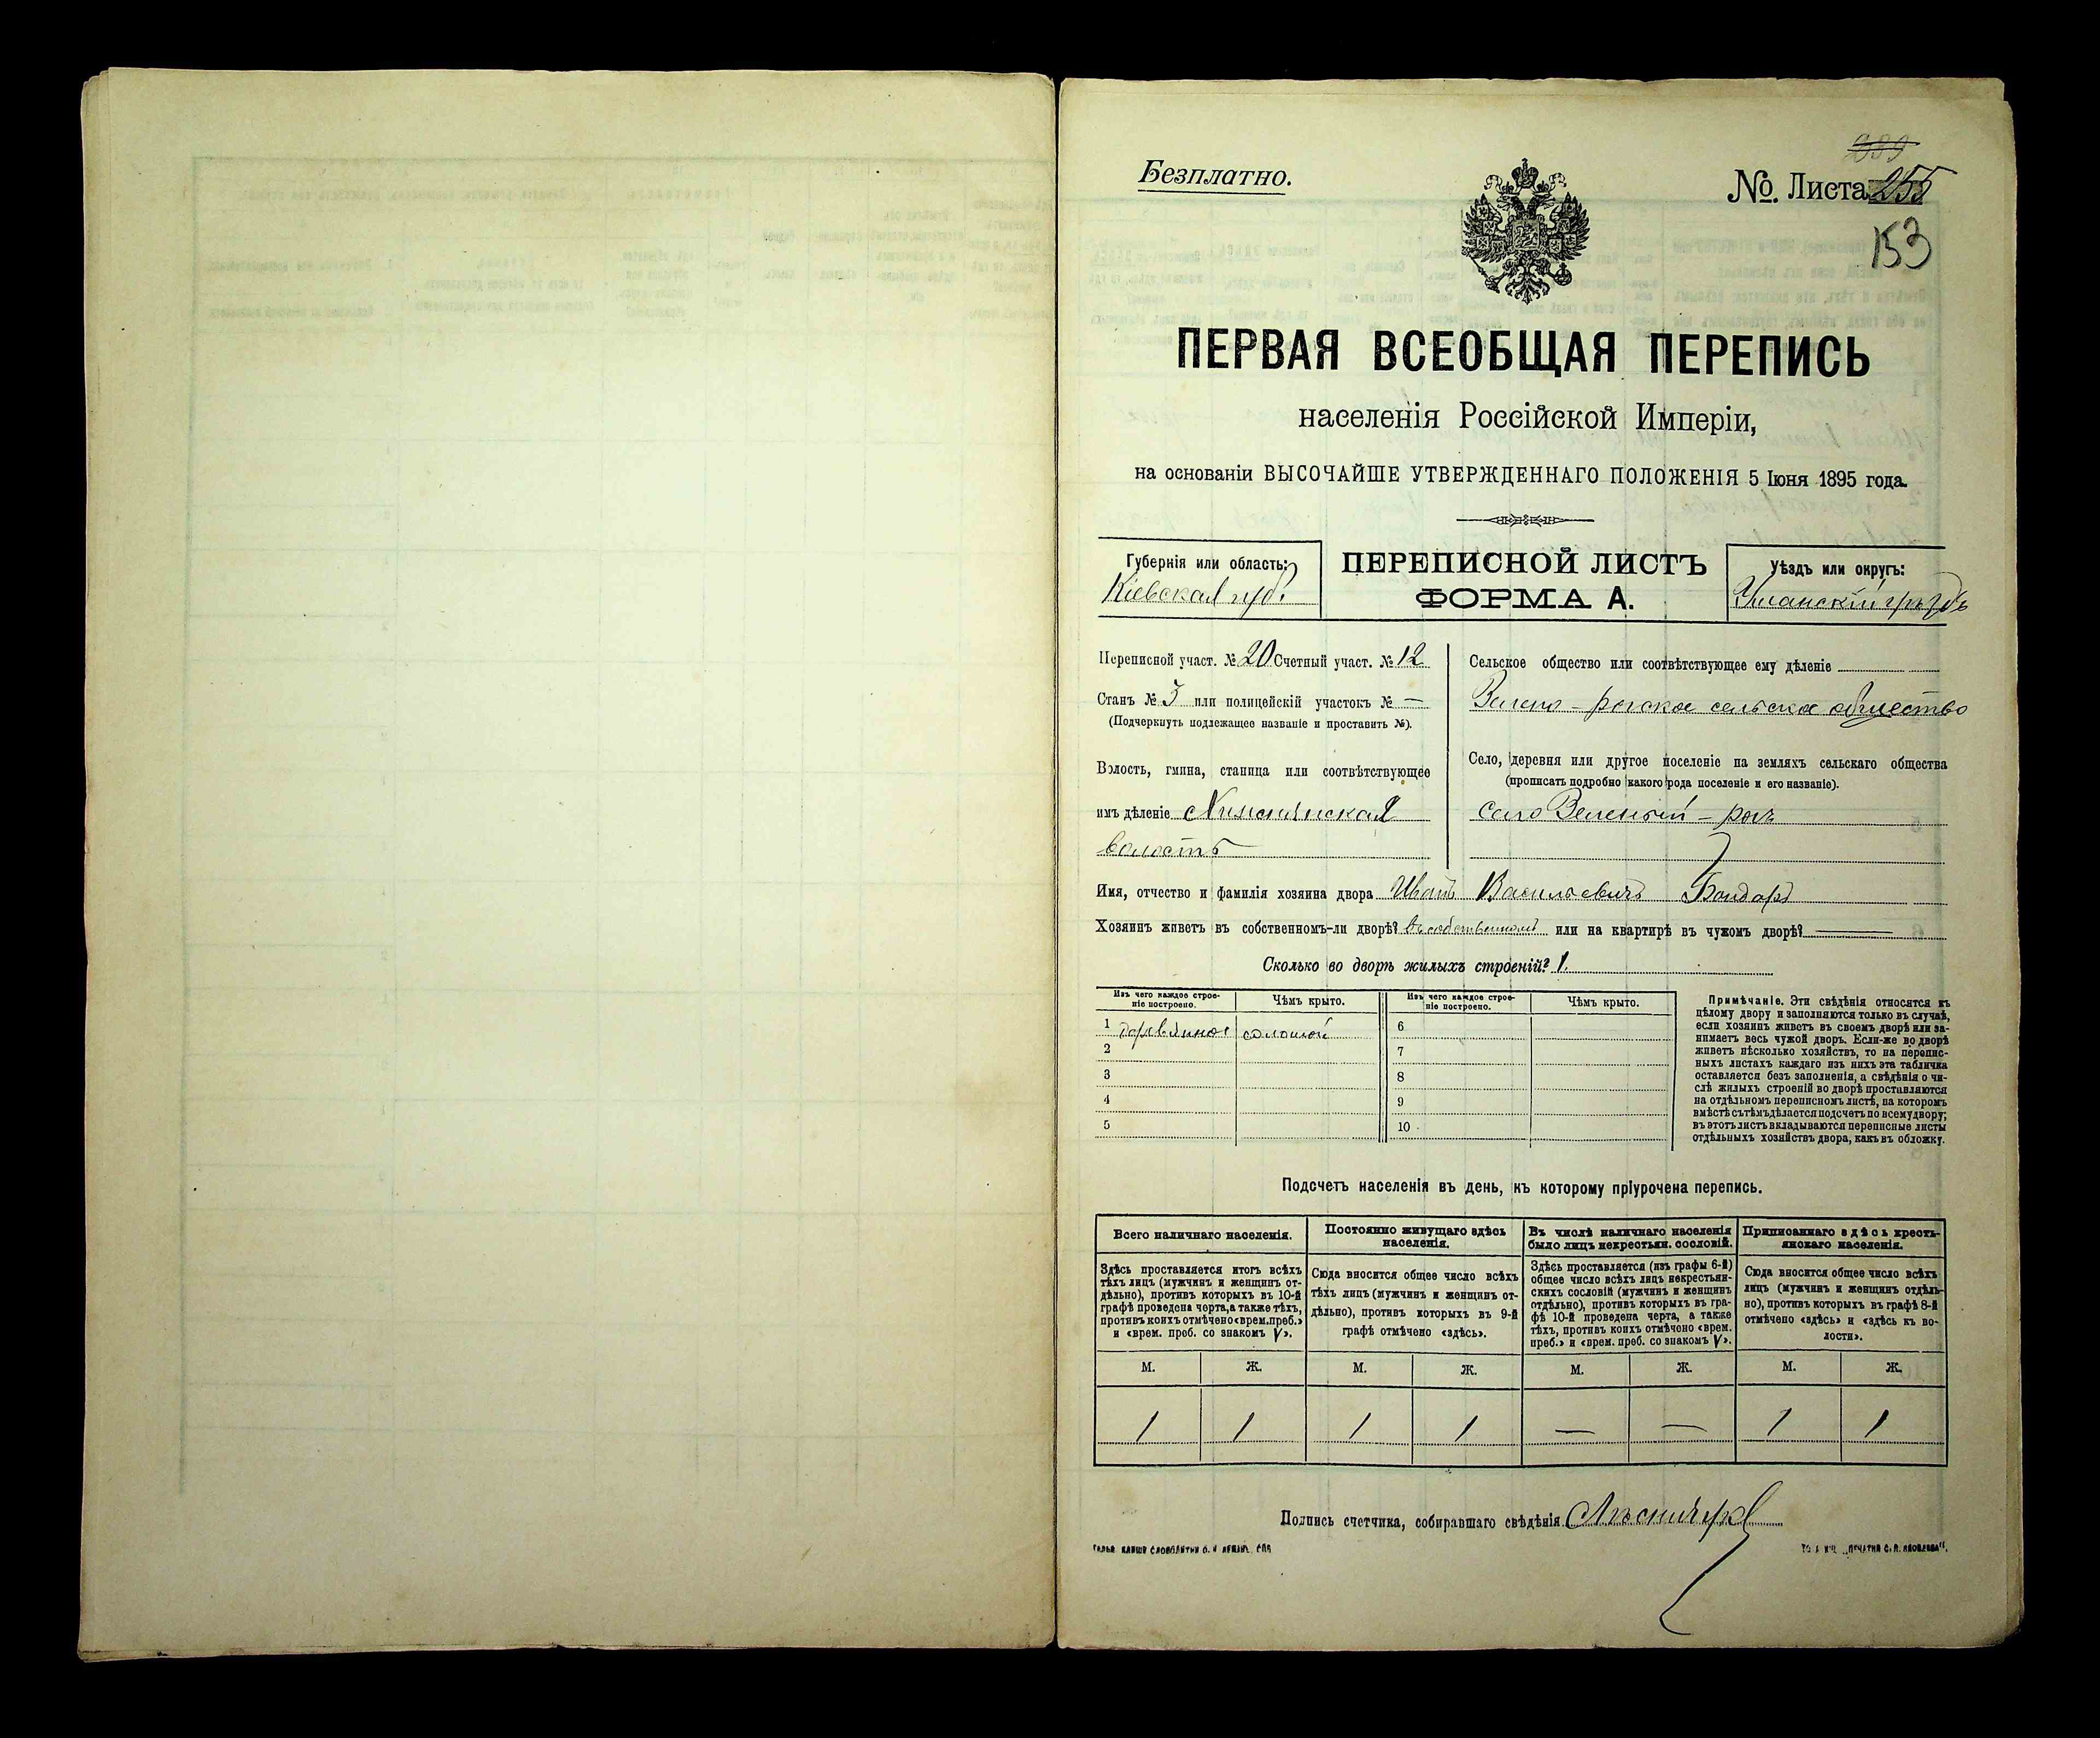 Безплатно.
№. Листа 255
153
ПЕРВАЯ ВСЕОБЩАЯ ПЕРЕПИСЬ
населенія Россійской Имперіи,
на основаніи ВЫСОЧАЙШЕ УТВЕРЖДЕННАГО ПОЛОЖЕНІЯ 5 Іюня 1895 года.
Губернія или область:
Кіевская губ.
ПЕРЕПИСНОЙ ЛИСТЪ
ФОРМА А.
Уѣздъ или округъ:
Уманскій уѣздъ
Переписной участ. № 20 Счетный участ. № 12
Станъ № 3 или полицейскій участокъ № —
(Подчеркнуть подлежащее названіе и проставить №).
Волость, гмина, станица или соотвѣтствующее
имъ дѣленіе
волость
Сельское общество или соотвѣтствующее ему дѣленіе
Зелено-рогское сельское общество
Село, деревня или другое поселеніе на земляхъ сельскаго общества
(прописать подробно какого рода поселеніе и его названіе).
село Зеленый-рогъ
Имя, отчество и фамилія хозяина двора Иванъ Васильевичъ Бондарь
Хозяинъ живетъ въ собственномъ-ли дворѣ? Въ собственномъ или на квартирѣ въ чужомъ дворѣ? —
Сколько во дворѣ жилыхъ строеній? 1.
Изъ чего каждое строе-
ніе построено.
Чѣмъ крыто.
Изъ чего каждое строе-
ніе построено.
Чѣмъ крыто.
1 деревяное соломой 6
2 7
3 8
4 9
5 10
Примѣчаніе. Эти свѣдѣнія относятся къ
цѣлому двору и заполняются только въ случаѣ,
если хозяинъ живетъ въ своемъ дворѣ или за-
нимаетъ весь чужой дворъ. Если-же во дворѣ
живетъ нѣсколько хозяйствъ, то на перепис-
ныхъ листахъ каждаго изъ нихъ эта табличка
оставляется безъ заполненія, а свѣдѣнія о чи-
слѣ жилыхъ строеній во дворѣ проставляются
на отдѣльномъ переписномъ листѣ, на которомъ
вмѣстѣ съ тѣмъ дѣлается подсчетъ по всему двору;
въ этотъ листъ вкладываются переписные листы
отдѣльныхъ хозяйствъ двора, какъ въ обложку.
Подсчетъ населенія въ день, къ которому пріурочена перепись.
Всего наличнаго населенія.
Здѣсь проставляется итогъ всѣхъ
тѣхъ лицъ (мужчинъ и женщинъ от-
дѣльно), противъ которыхъ въ 10-й
графѣ проведена черта, а также тѣхъ,
противъ коихъ отмѣчено «врем. преб.»
и «врем. преб. со знакомъ V».
Постоянно живущаго здѣсь
населенія.
Сюда вносится общее число всѣхъ
тѣхъ лицъ (мужчинъ и женщинъ от-
дѣльно), противъ которыхъ въ 9-й
графѣ отмѣчено «здѣсь».
Въ числѣ наличнаго населенія
было лицъ некрестьян. сословій.
Здѣсь проставляется (изъ графы 6-й)
общее число всѣхъ лицъ некрестьян-
скихъ сословій (мужчинъ и женщинъ
отдѣльно), противъ которыхъ въ гра-
фѣ 10-й проведена черта, а также
тѣхъ, противъ коихъ отмѣчено «врем.
преб.» и «врем. преб. со знакомъ V».
Приписаннаго здѣсь кресть-
янскаго населенія.
Сюда вносится общее число всѣхъ
лицъ (мужчинъ и женщинъ отдѣль-
но), противъ которыхъ въ графѣ 8-й
отмѣчено «здѣсь» и «здѣсь къ во-
лости».
М. Ж. М. Ж. М. Ж. М. Ж.
1 1 1 1 — — 1 1
Подпись счетчика, собиравшаго свѣдѣнія